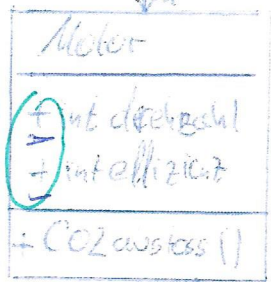 Motor
+ int drehzahl
+ int effizient
+ CO2 ausstoss ()